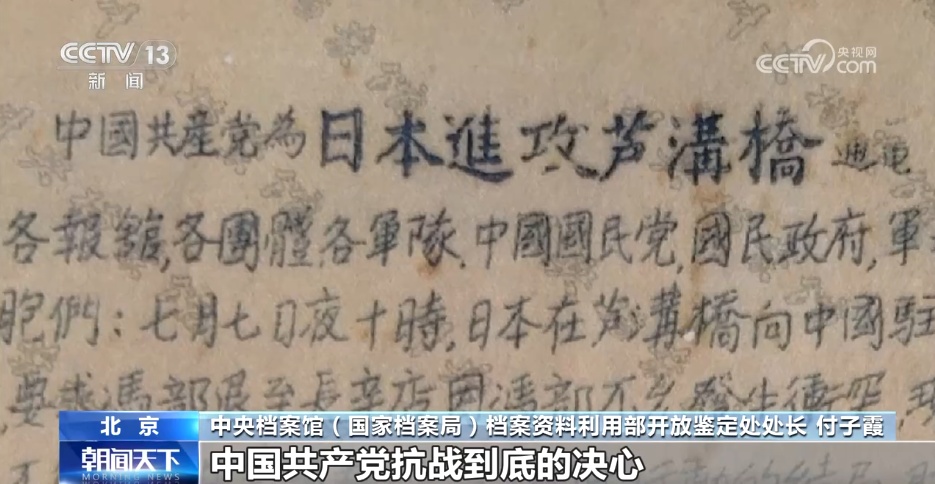 CCTV 13
新闻
央视网
CCTV.com
中國共産党為日本進攻芦溝橋通電
各報舘,各團體,各軍隊.中國國民党,國民政府,軍
胞們:七月七日夜十時,日本在芦溝橋向中國駐
要求馮部退至長辛店因馮部不允發生衝突,
北京
中央档案馆(国家档案局)档案资料利用部开放鉴定处处长 付子霞
朝闻天下
MORNING NEWS
中国共产党抗战到底的决心